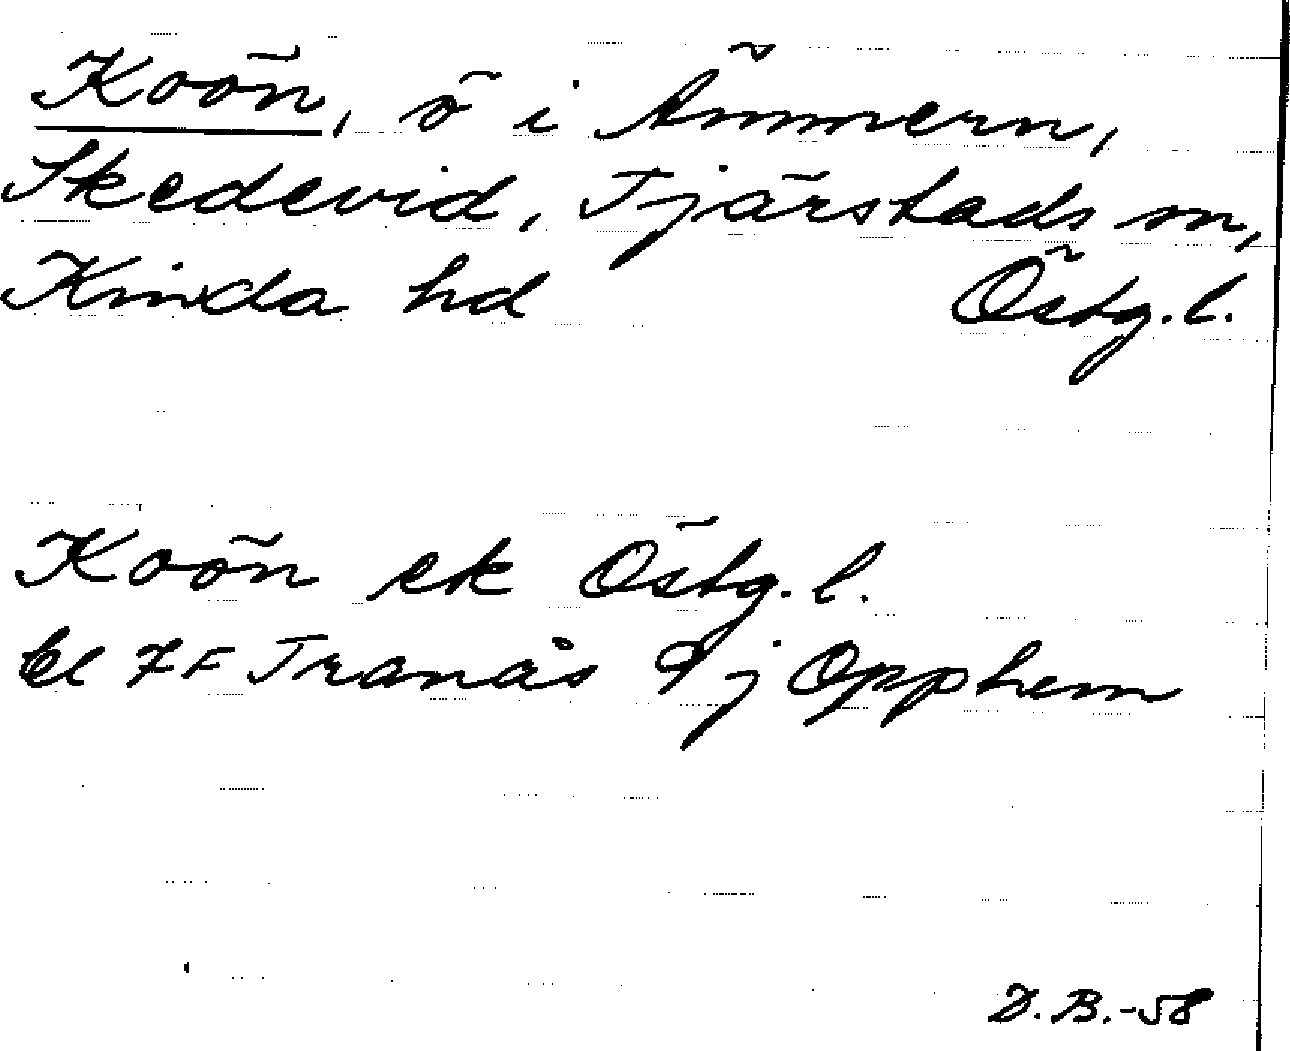 Koön, ö i Ämmern,
Skedevid, Tjärstads sn,
Kinda hd Östg. l.
Koön ek Östg. l.
bl 7F Tranås 9j Opphem
D. B. -58